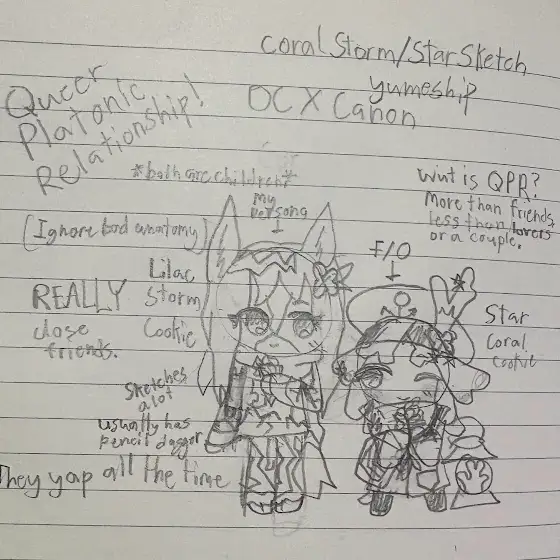 coral Storm/StarSketch
yumeship
OC X Canon
Queer
Platonic
Relationship!
*both are children*
My
persona
What is QPR?
More than friends,
less than lovers
or a couple.
[Ignore bad anatomy]
F/O
Lilac
Storm
Cookie
REALLY
close
friends.
Star
Coral
Cookie
Sketches
a lot
usually has
pencil dagger
They yap all the time